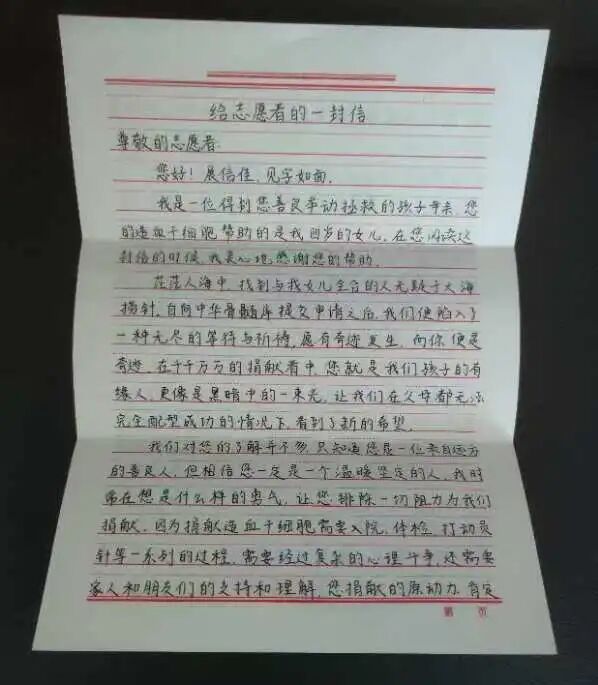 给志愿者的一封信
尊敬的志愿者:
您好！展信佳,见字如面。
我是一位得到您善良举动拯救的孩子母亲,您
的造血干细胞帮助的是我四岁的女儿。在您阅读这
封信的时候,我衷心地感谢您的帮助。
茫茫人海中,找到与我女儿全合的人无疑于大海
捞针,自向中华骨髓库提交申请之后,我们便陷入了
一种无尽的等待与祈祷,愿有奇迹发生,而你便是
奇迹。在千千万万的捐献者中,您就是我们孩子的有
缘人,更像是黑暗中的一束光,让我们在父母都无法
完全配型成功的情况下,看到了新的希望。
我们对您的了解并不多,只知道您是一位来自远方
的善良人,但相信您一定是一个温暖坚定的人,我时
常在想是什么样的勇气,让您排除一切阻力为我们
捐献,因为捐献造血干细胞需要入院,体检,打动员
针等一系列的过程,需要经过复杂的心理斗争,还需要
家人和朋友们的支持和理解,您捐献的原动力,肯定
第 页